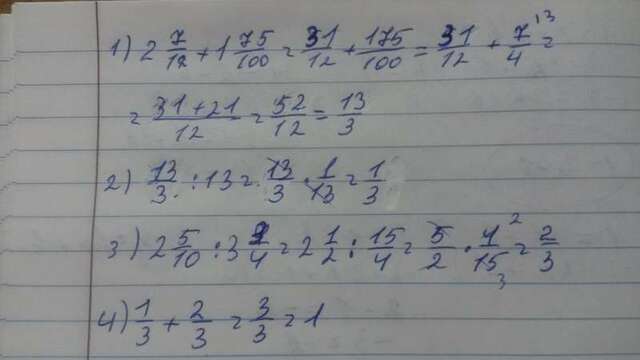 1) 2 7/12 + 1 75/100 = 31/12 + 175/100 = 31/12 + 7/4 13 =
= 31+21/12 = 52/12 = 13/3
2) 13/3 : 13 = 13/3 · 1/13 = 1/3
3) 2 5/10 : 3 /4 = 2 1/2 : 15/4 = 5/2 · 4 2/15 3 = 2/3
4) 1/3 + 2/3 = 3/3 = 1